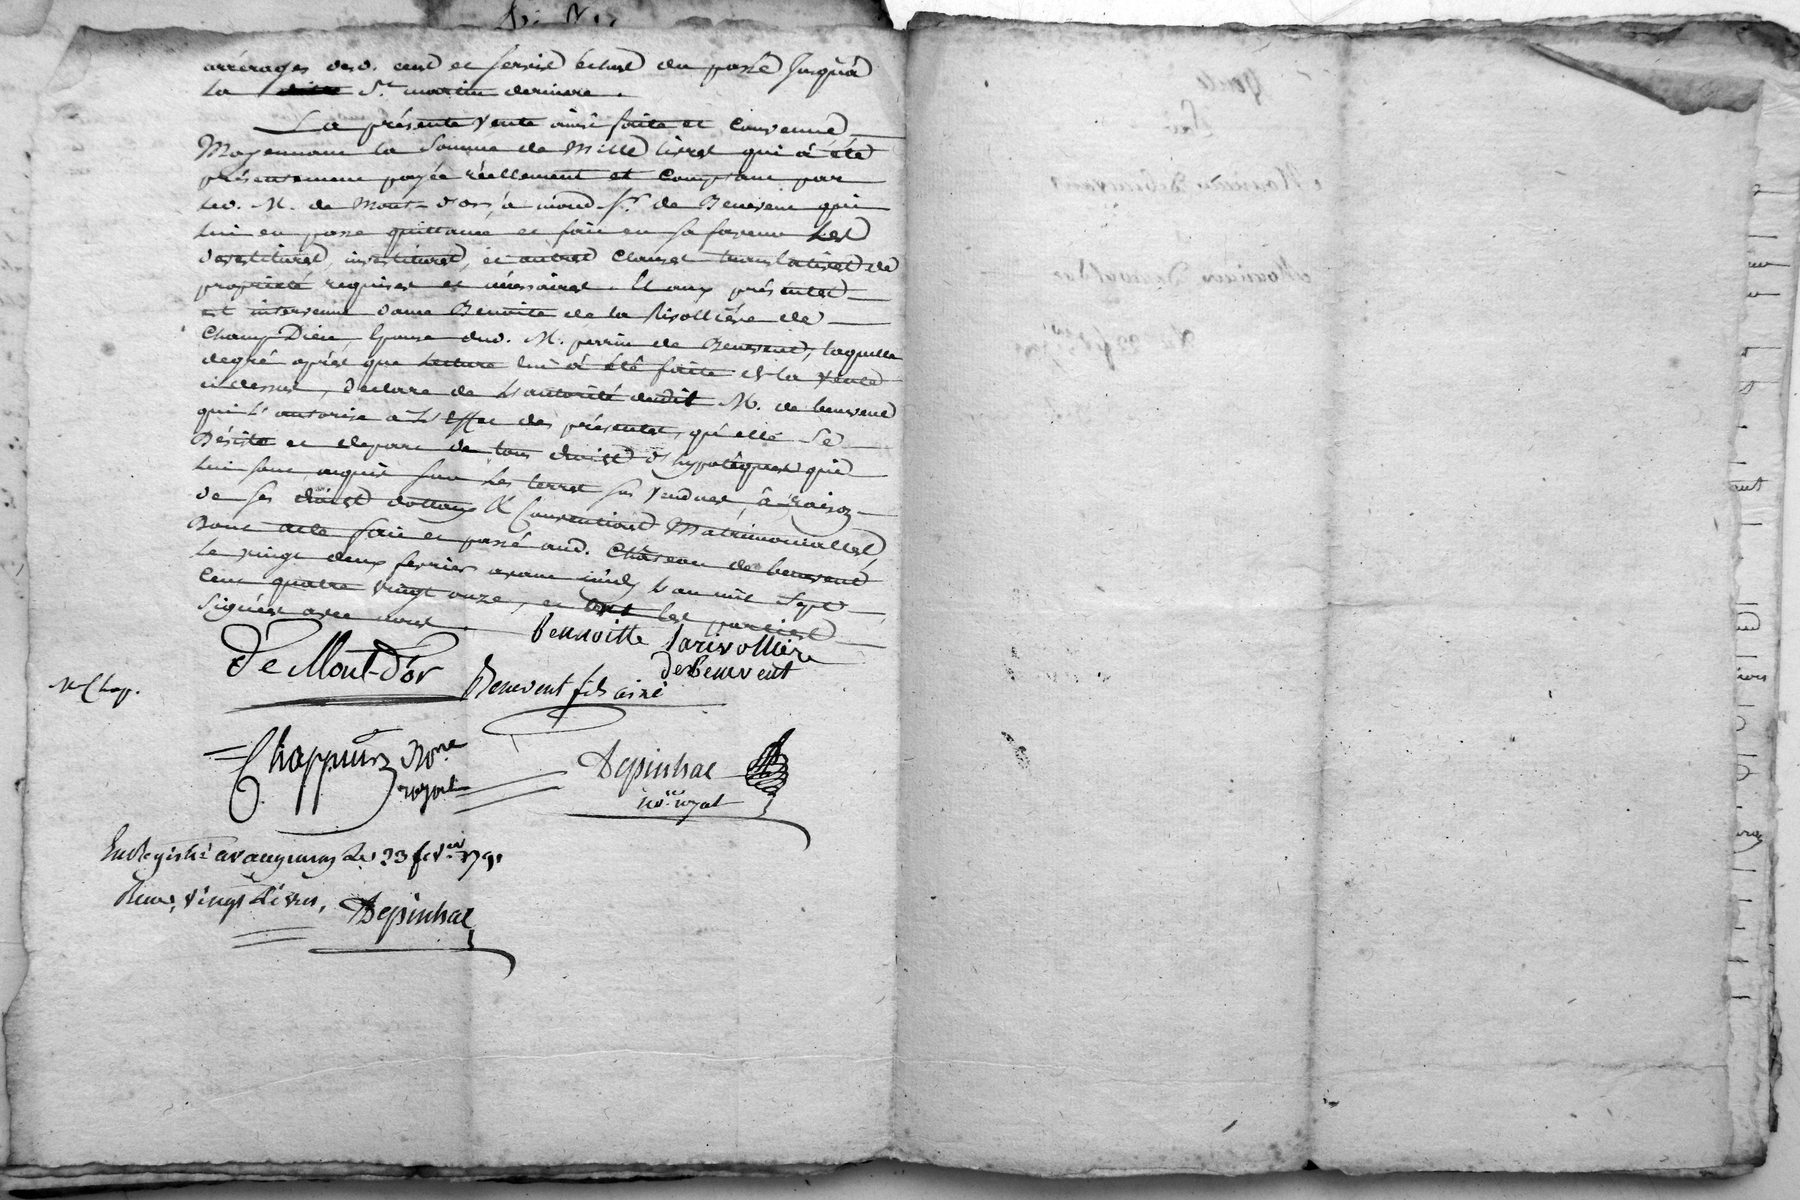 arrérages desd. cens et servis échus du passé jusqu'à
la St martin derniere.
La présente vente ainsi faite et convenue
Moyennant la somme de Mille livres qui a été
présentement payée réellement et comptant par
led. M. de Mont-d'or, à mond. Sr. de Benevent qui
lui en passe quittance et fait en sa faveur les
devestitures, investitures, et autres clauses translatives de
propriété requises et nécessaires. Et aux présentes
est intervenue dame Benoite de la Rivollière de
Champ Dieu, Epouse dud. M. perrin de Benevent, laquelle
degré après que lecture lui a été faite de la vente
ci dessus, declare de l'autorité dudit M. de benevent
qui l'autorise a l'effet des présentes, qu'elle se
Désiste et depart de tous droits d'hypotèques qui
lui sont acquis sur les terres sus vendues, à raison
de ses droits dottaux & Conventions Matrimonialles,
Dont acte fait et passé aud. Château de benevent
le vingt deux fevrier avant midy l'an mil sept
cent quatre vingt onze, et ont les parties
signées avec nous.
Bennoitte Larivollière
De Mont-D'or
de Benevent
Benevent fils ainé
Chappuis Nore
royal
Depinhac
nore royal
Enregistré le 23 fevrier 1791
Reçu, vingt Livres,
Depinhac